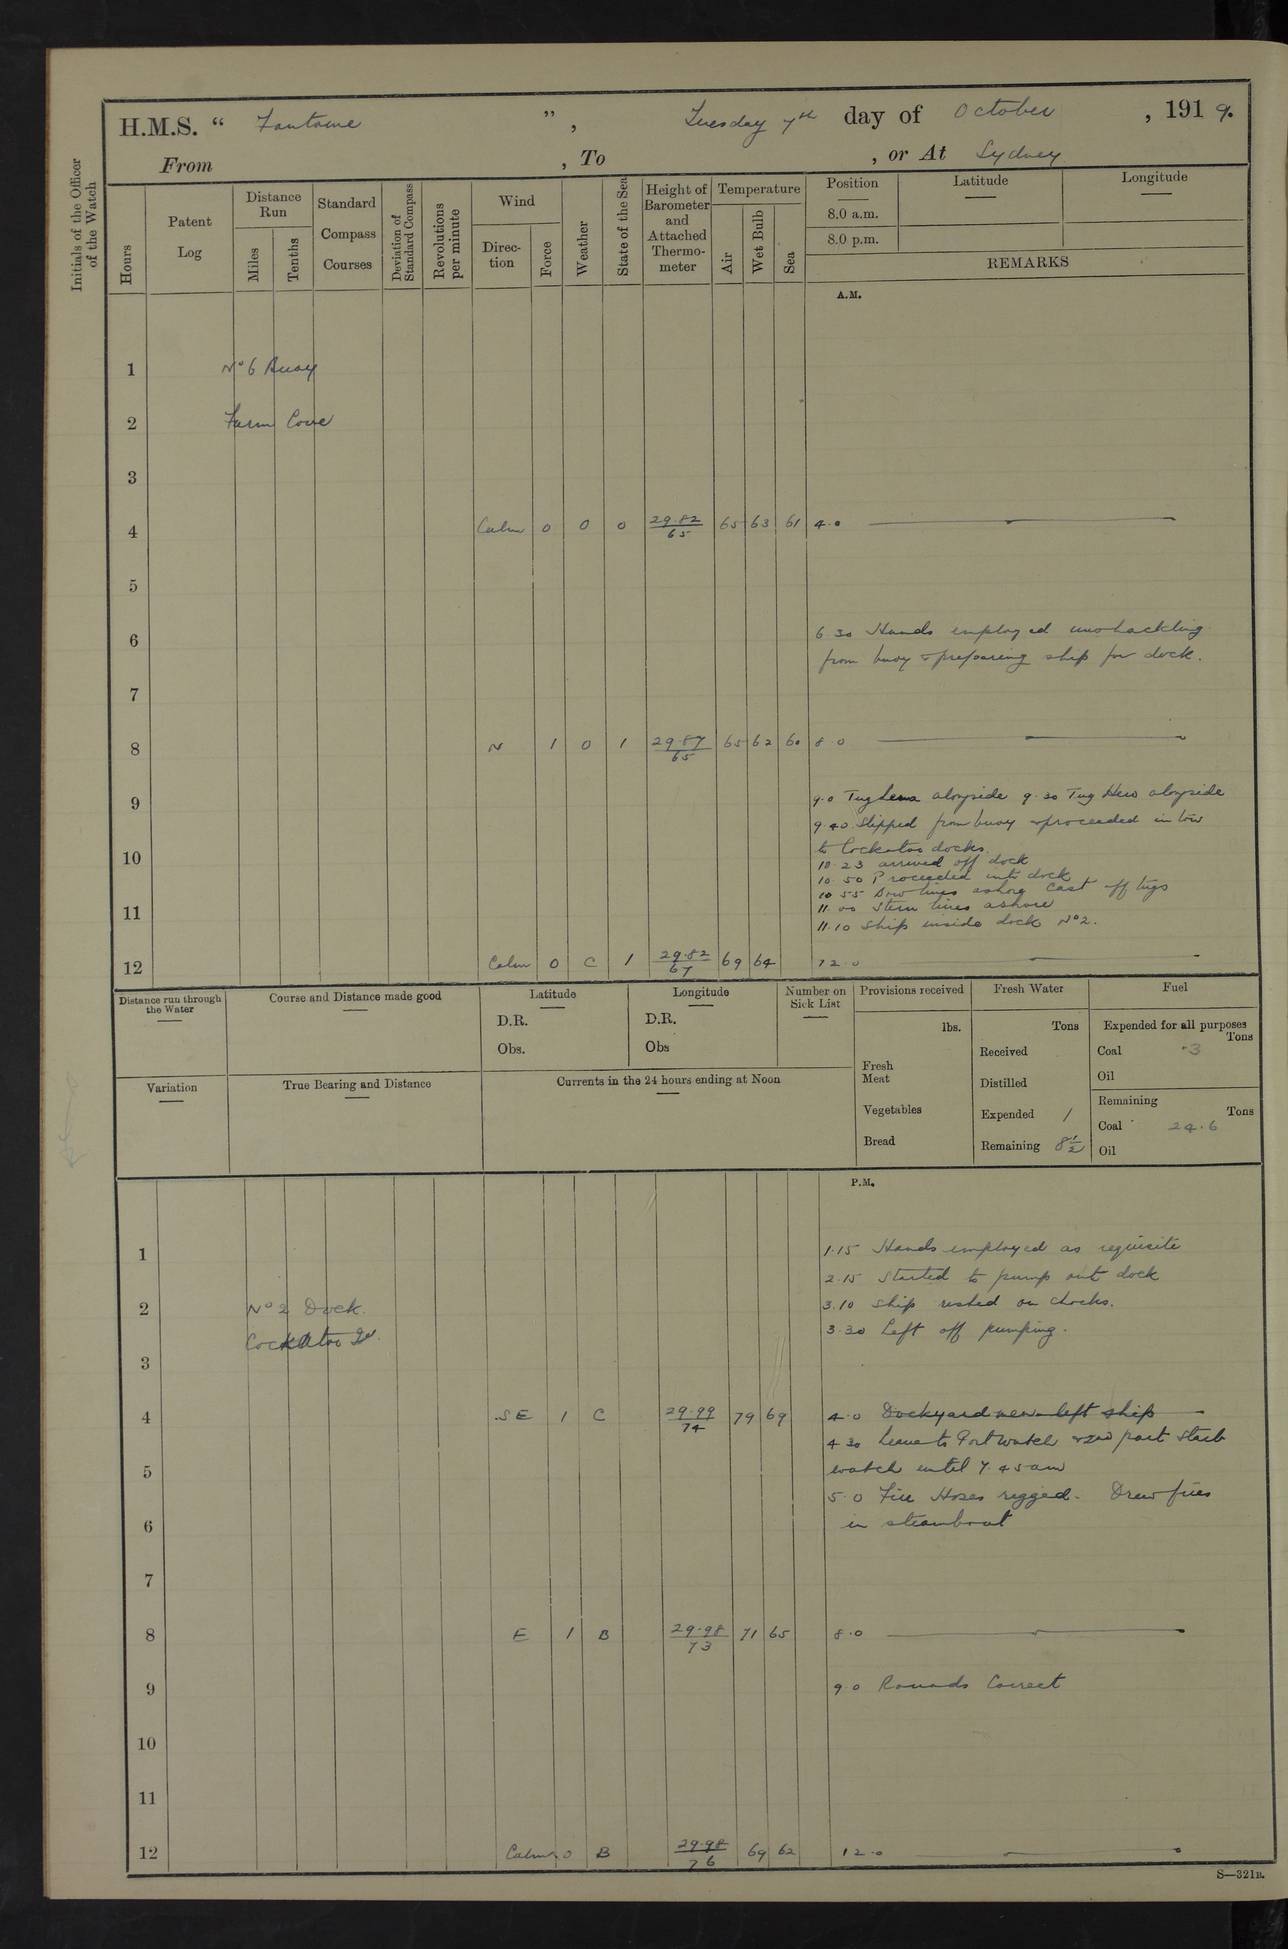 H.M.S. “ Fantome ” , Tuesday 7th day of October , 191 9.
From , To , or At Sydney
Initials of the Officer of the Watch
Hours
Patent Log
Distance Run
Miles
Tenths
Standard Compass Courses
Deviation of Standard Compass
Revolutions per minute
Wind
Direc-tion
Force
Weather
State of the Sea
Height of Barometer and Attached Thermo-meter
Temperature
Air
Wet Bulb
Sea
Position
8.0 a.m.
8.0 p.m.
Latitude
Longitude
REMARKS
A.M.
1 No 6 Buoy
2 Farm Cove
3
4 Calm 0 0 0 29.82/65 65 63 61 4.0
5
6 6 30 Hands employed unshackling
from buoy & preparing ship for dock.
7
8 N 1 0 1 29.87/65 65 62 60 8 0
9 9.0 Tug alongside 9.30 Tug alongside
9.40 Slipped from buoy & proceeded in tow
to Cockatoo docks.
10 10.23 arrived off dock
10.50 Proceeded into dock
10 55 Bow lines ashore Cast off tugs
11 11.00 Stern lines ashore
11.10 Ship inside dock No 2.
12 Calm 0 C 1 29.82/67 69 64 12.0
Distance run through the Water
Course and Distance made good
Latitude
D.R.
Obs.
Longitude
D.R.
Obs
Number on Sick List
Provisions received
lbs.
Fresh Meat
Vegetables
Bread
Fresh Water
Tons
Received
Distilled
Expended 1
Remaining 8½
Fuel
Expended for all purposes
Tons
Coal .3
Oil
Remaining
Tons
Coal 24.6
Oil
Variation
True Bearing and Distance
Currents in the 24 hours ending at Noon
P.M.
1 1.15 Hands employed as requisite
2.15 Started to pump out dock
2 No 2 Dock. 3.10 Ship rested on chocks.
Cockatoo Id. 3.30 Left off pumping.
3
4 SE 1 C 29.99/74 79 69 4.0 Dockyard men left ship
4 30 Leave to Port watch & 2nd part Starb
5 watch until 7.45 am
5.0 Fire Hoses rigged. Drew fires
6 in steamboat
7
8 E 1 B 29.98/73 71 65 8.0
9 9 0 Rounds Correct
10
11
12 Calm 0 B 29.98/76 69 62 12.0
S—321B.